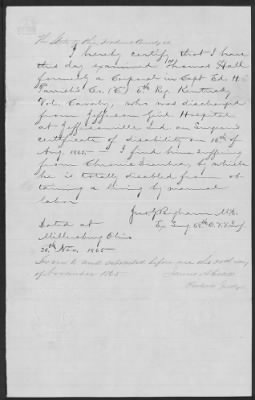 The State of Ohio Holmes County ss
I hereby certify that I have
this day examined Thomas Hall
formerly a Corporal in Capt Ed. H.
Co. (E) 6th Reg Kentucky
Vol. Cavalry, who was discharged
from Jefferson Genl. Hospital
at Jeffersonville Ind. on Surgeon's
certificate of disability on 18th of
Aug. 1865. I find him suffering
from Chronic Diarrhea, by which
he is totally disabled from ob
taining a living by manual
labor
Bigham M.D.
Ex Surg O.V. Inf.
Dated at
Millersburg Ohio
20th Nov. 1865
Sworn to and subscribed before me this 20th day
of November 1865
Probate Judge